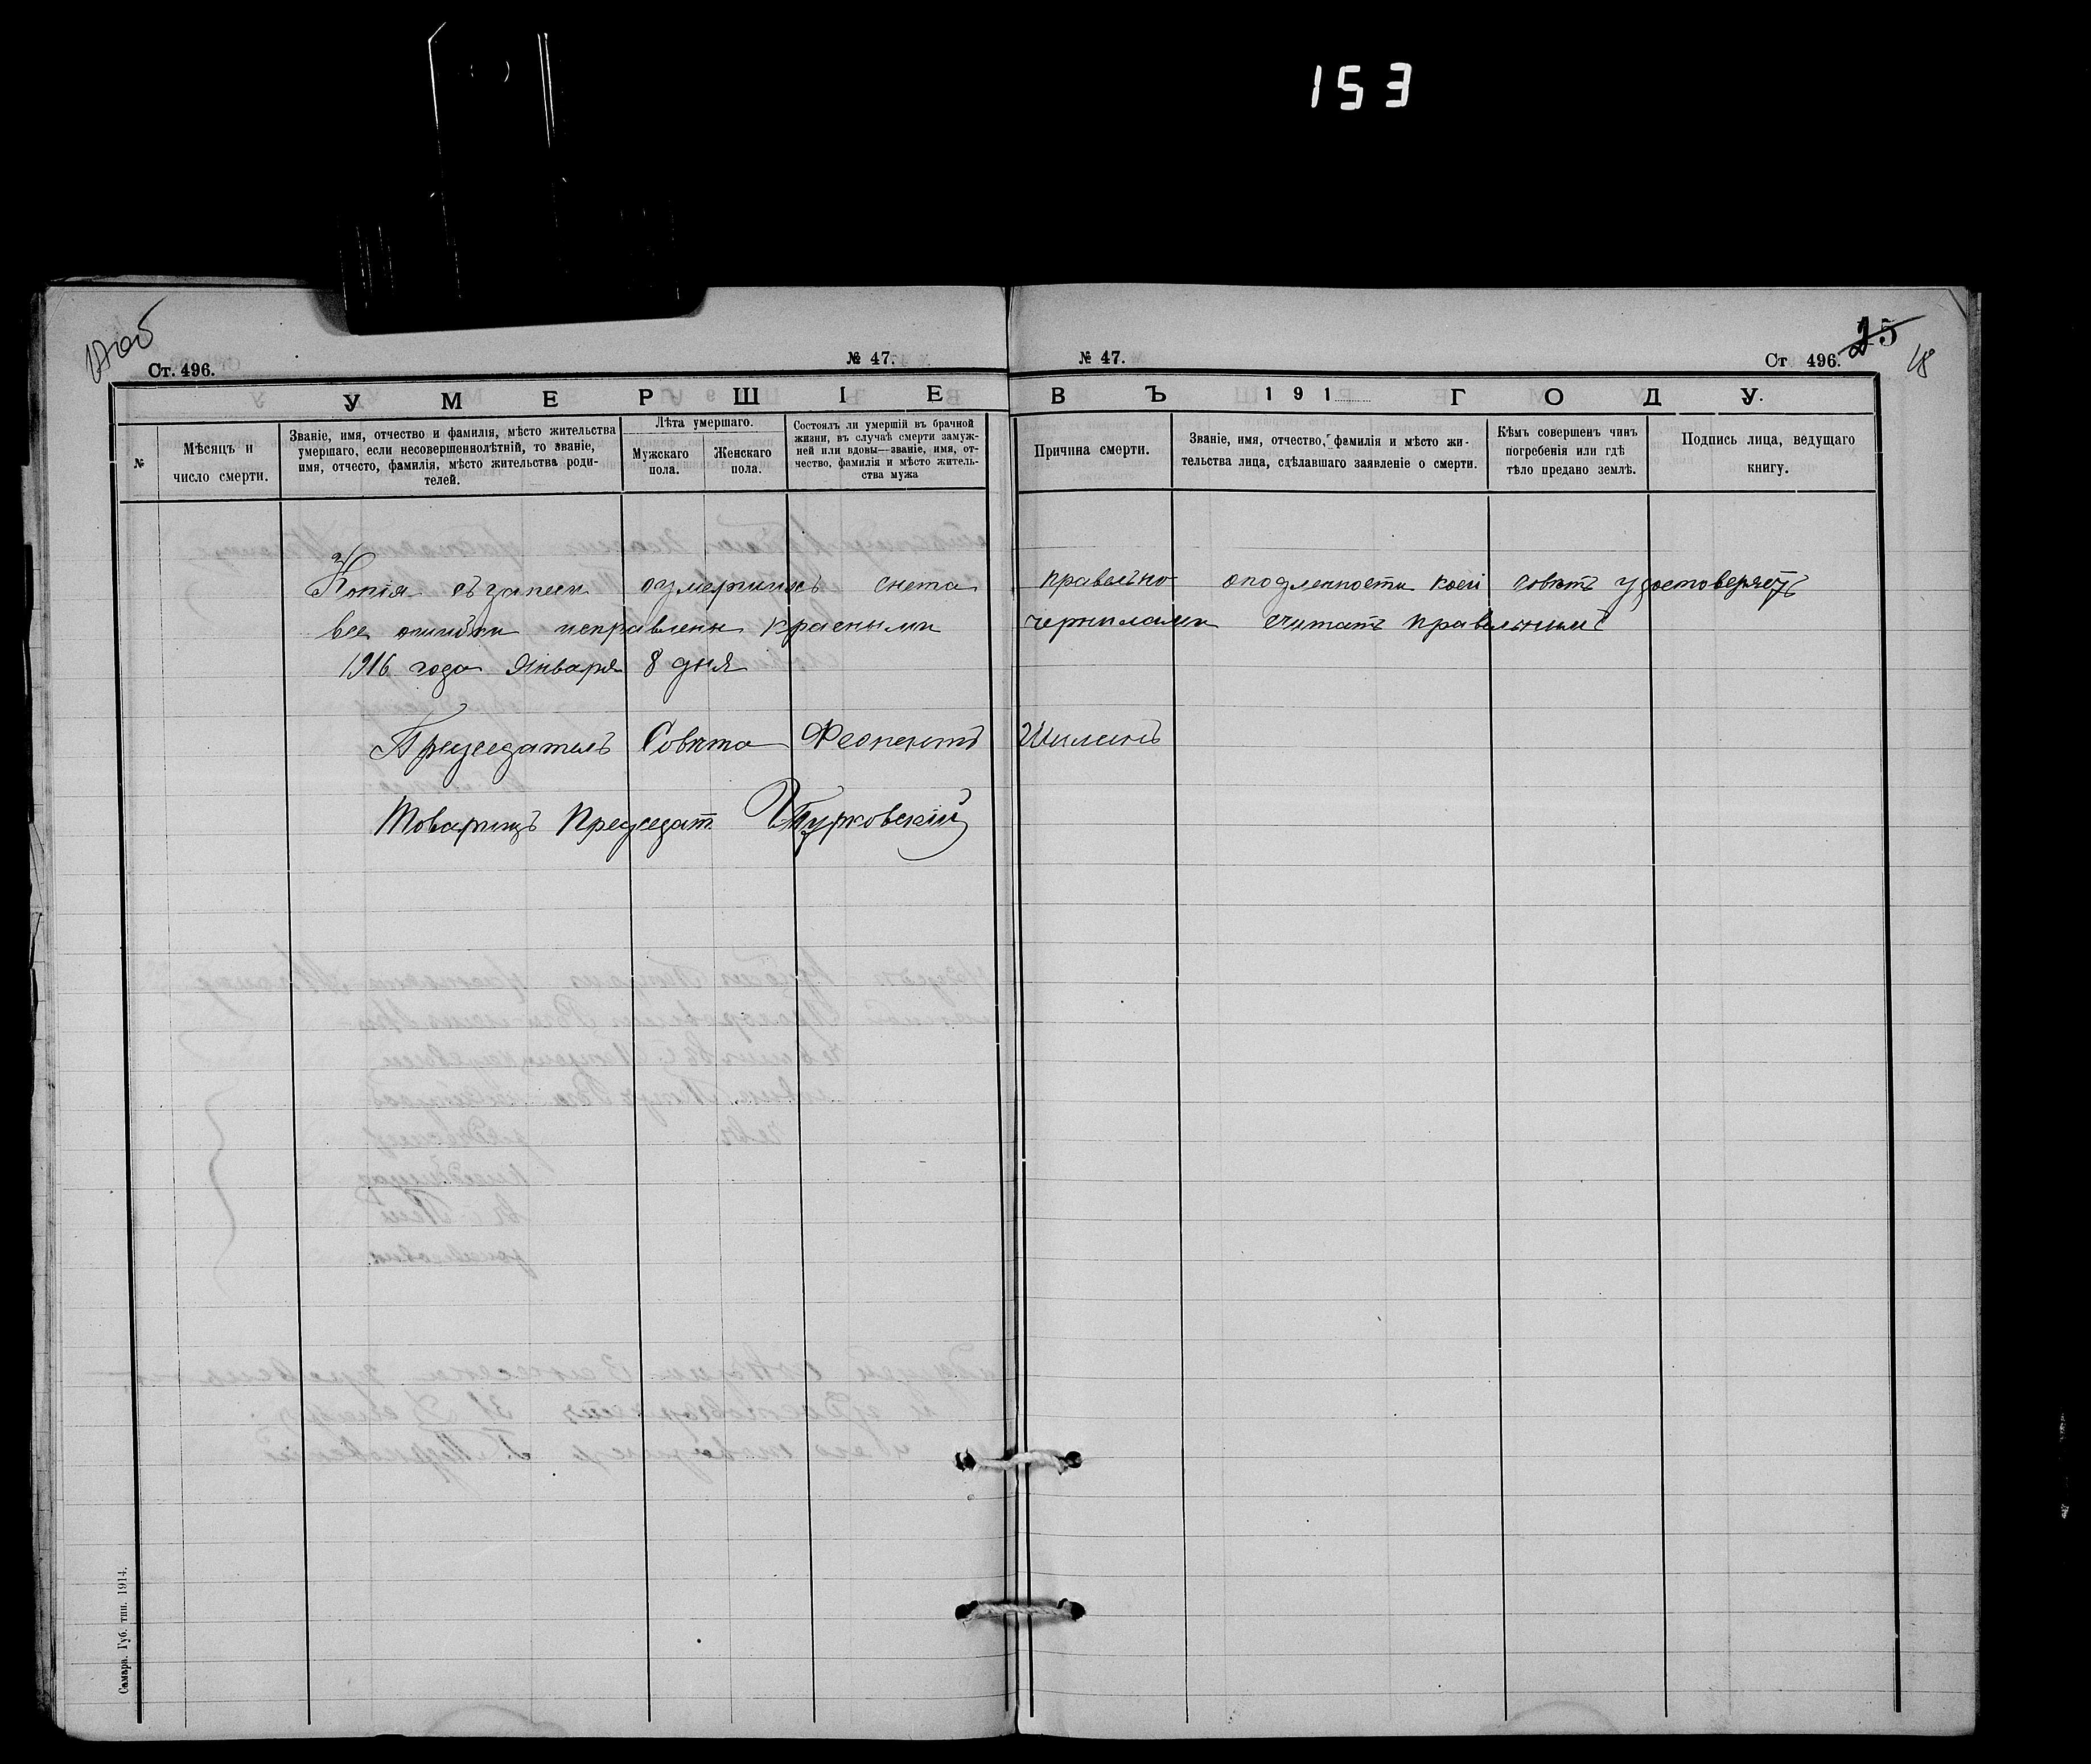 153
17об
Ст. 496.
№ 47.
№ 47.
Ст 496.
25
18
УМЕРШІЕ ВЪ 191 ГОДУ.
№
Мѣсяцъ и
число смерти.
Званіе, имя, отчество и фамилія, мѣсто жительства
умершаго, если несовершеннолѣтній, то званіе,
имя, отчесто, фамилія, мѣсто жительства роди-
телей.
Лѣта умершаго.
Мужскаго
пола.
Женскаго
пола.
Состоялъ ли умершій въ брачной
жизни, въ случаѣ смерти замуж-
ней или вдовы—званіе, имя, от-
чество, фамилія и мѣсто житель-
ства мужа
Причина смерти.
Званіе, имя, отчество, фамилія и мѣсто жи-
тельства лица, сдѣлавшаго заявленіе о смерти.
Кѣмъ совершенъ чинъ
погребенія или гдѣ
тѣло предано землѣ.
Подпись лица, ведущаго
книгу.
Копія съ записи оумершихъ снета правельно оподленности коей совѣтъ удостоверяетъ
все ошибки исправлены красными чернилами считать правельными
1916 года Января 8 дня
Председатель Совѣта Феоктистъ Шилинъ
Товарищъ Председат. Турковскій
Самара. Губ. тип. 1914.